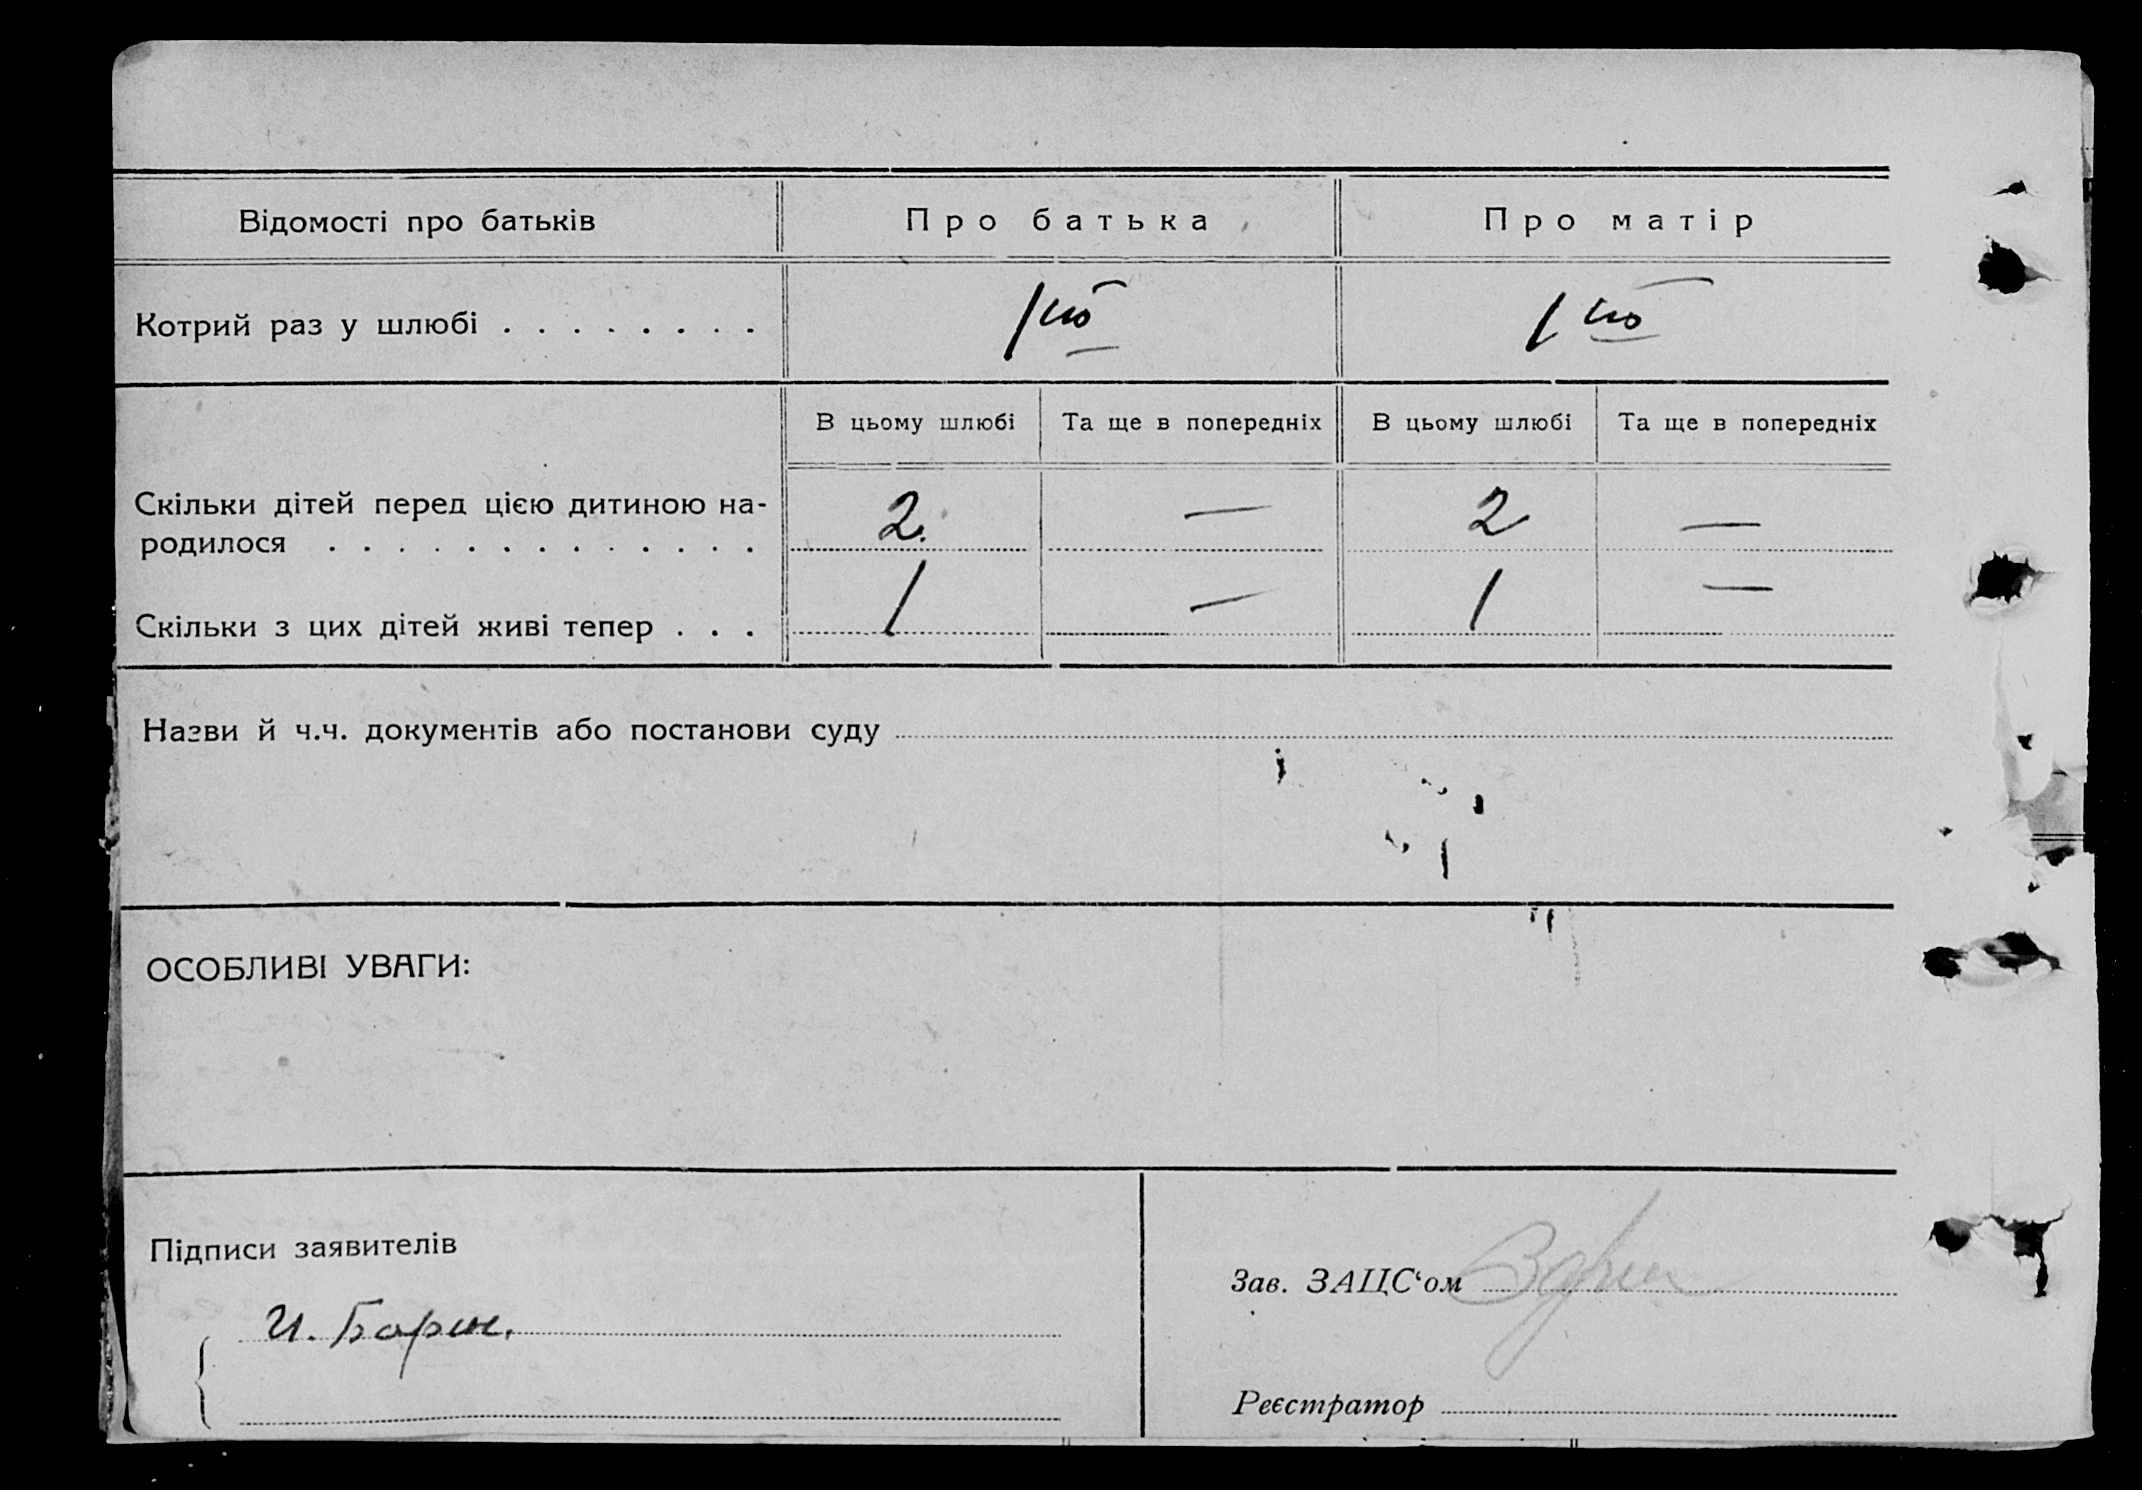 Відомості про батьків Про батька Про матір
Котрий раз у шлюбі . . . . . . . . 1 1
В цьому шлюбі Та ще в попередніх В цьому шлюбі Та ще в попередніх
Скільки дітей перед цією дитиною на-
родилося . . . . . . . . . . . . . 2. — 2 —
Скільки з цих дітей живі тепер . . . 1 — 1 —
Назви й ч.ч. документів або постанови суду
ОСОБЛИВІ УВАГИ:
Підписи заявителів
Зав. ЗАЦС‘ом
И.
Реєстратор